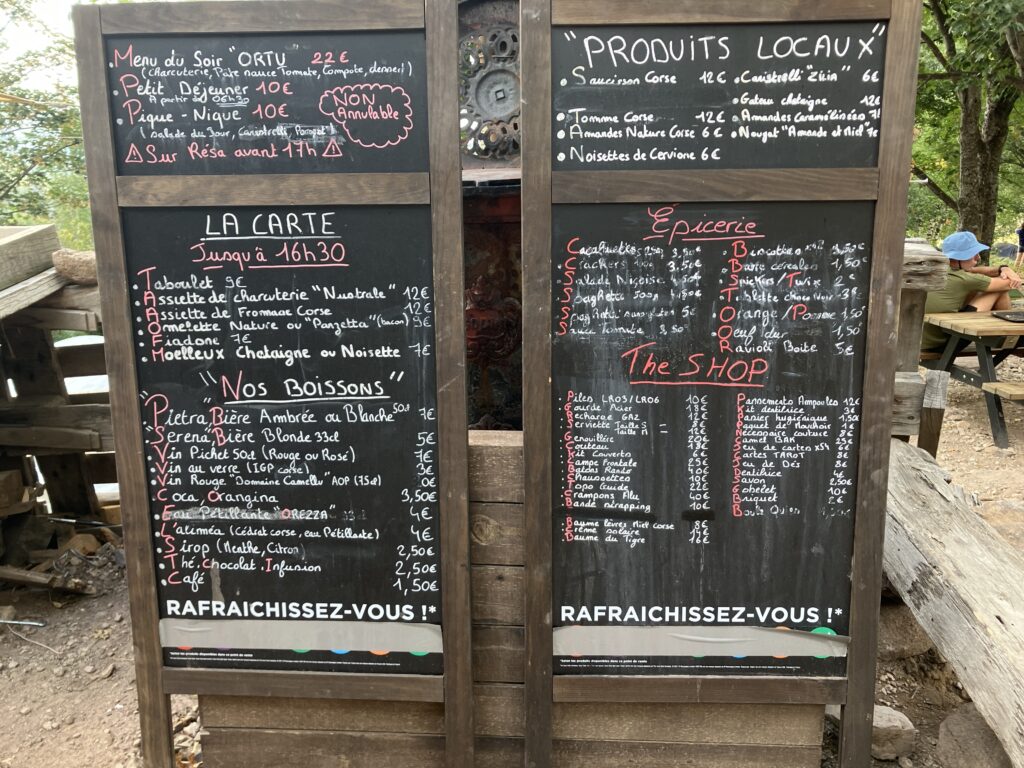 Menu du Soir "ORTU" 22€
(charcuterie, Pâte sauce Tomate, Compote, dessert)
Petit Déjeuner 10€
A partir de 06h30
Pique-Nique 10€
(salade du Jour, Canistrelli,
NON Annulable
Sur Résa avant 17h
LA CARTE
Jusqu'à 16h30
Taboulet 9€
Assiette de charcuterie "Nustrale" 12€
Assiette de Fromage Corse 12€
Omelette Nature ou "Panzetta" (bacon) 9€
Fiadone 7€
Moelleux Chataigne ou Noisette 7€
"Nos BOISSONS"
Pietra, Bière Ambrée ou Blanche 50cl 7€
Serena, Bière Blonde 33cl 5€
Vin Pichet 50cl (Rouge ou Rosé) 7€
Vin au verre (IGP corse) 3€
Vin Rouge "Domaine Camellu" AOP (75cl)
Coca, Orangina 3,50€
Eau Pétillante "OREZZA" 4€
L'aliméa (Cédrat corse, eau Pétillante) 4€
Sirop (Menthe, Citron) 2,50€
Thé. Chocolat. Infusion 2,50€
Café 1,50€
RAFRAICHISSEZ-VOUS !*
"PRODUITS LOCAUX"
Saucisson Corse 12€
Tomme Corse 12€
Amandes Nature Corse 6€
Noisettes de Cervione 6€
Canistrelli "Zilia" 6€
Gateau chataigne 12€
Amandes Caramélisées
Nougat "Amande et Miel" 7€
Épicerie
Cacahuetes 3,50€
Crackers 3,50€
Salade Niçoise
Spaghetti 500g
Spaghetti 5€
Sauce Tomate 3,50€
Biscottes 3,50€
Barre céréales 1,50€
Snickers/Twix 2€
Tablette choco Noir 3€
Orange/Pomme 1,50€
Oeuf dur 1,50€
Ravioli Boite 5€
The SHOP
Piles LR03/LR06 10€
Gourde Acier 18€
Recharge GAZ 12€
Serviette Taille S = 8€
Taille M 12€
Genouillère 20€
Couteau 18€
Kit Couverts 6€
Lampe Frontale 25€
Batons Rando 40€
Chaussettes 10€
Topo Guide 22€
Crampons Alu 40€
Bande strapping 10€
Baume lèvres Miel Corse 8€
Crème solaire 14€
Baume du Tigre 16€
Pansements Ampoules 12€
Kit dentifrice 3€
Papier hygiénique 1,50€
Paquet de Mouchoir 1€
Nécessaire couture
Camel BAK 25€
Jeu de cartes x54
Cartes TAROT 8€
Jeu de Dés 8€
Dentifrice 4€
Savon 2,50€
Gobelet 10€
Briquet 2€
RAFRAICHISSEZ-VOUS !*